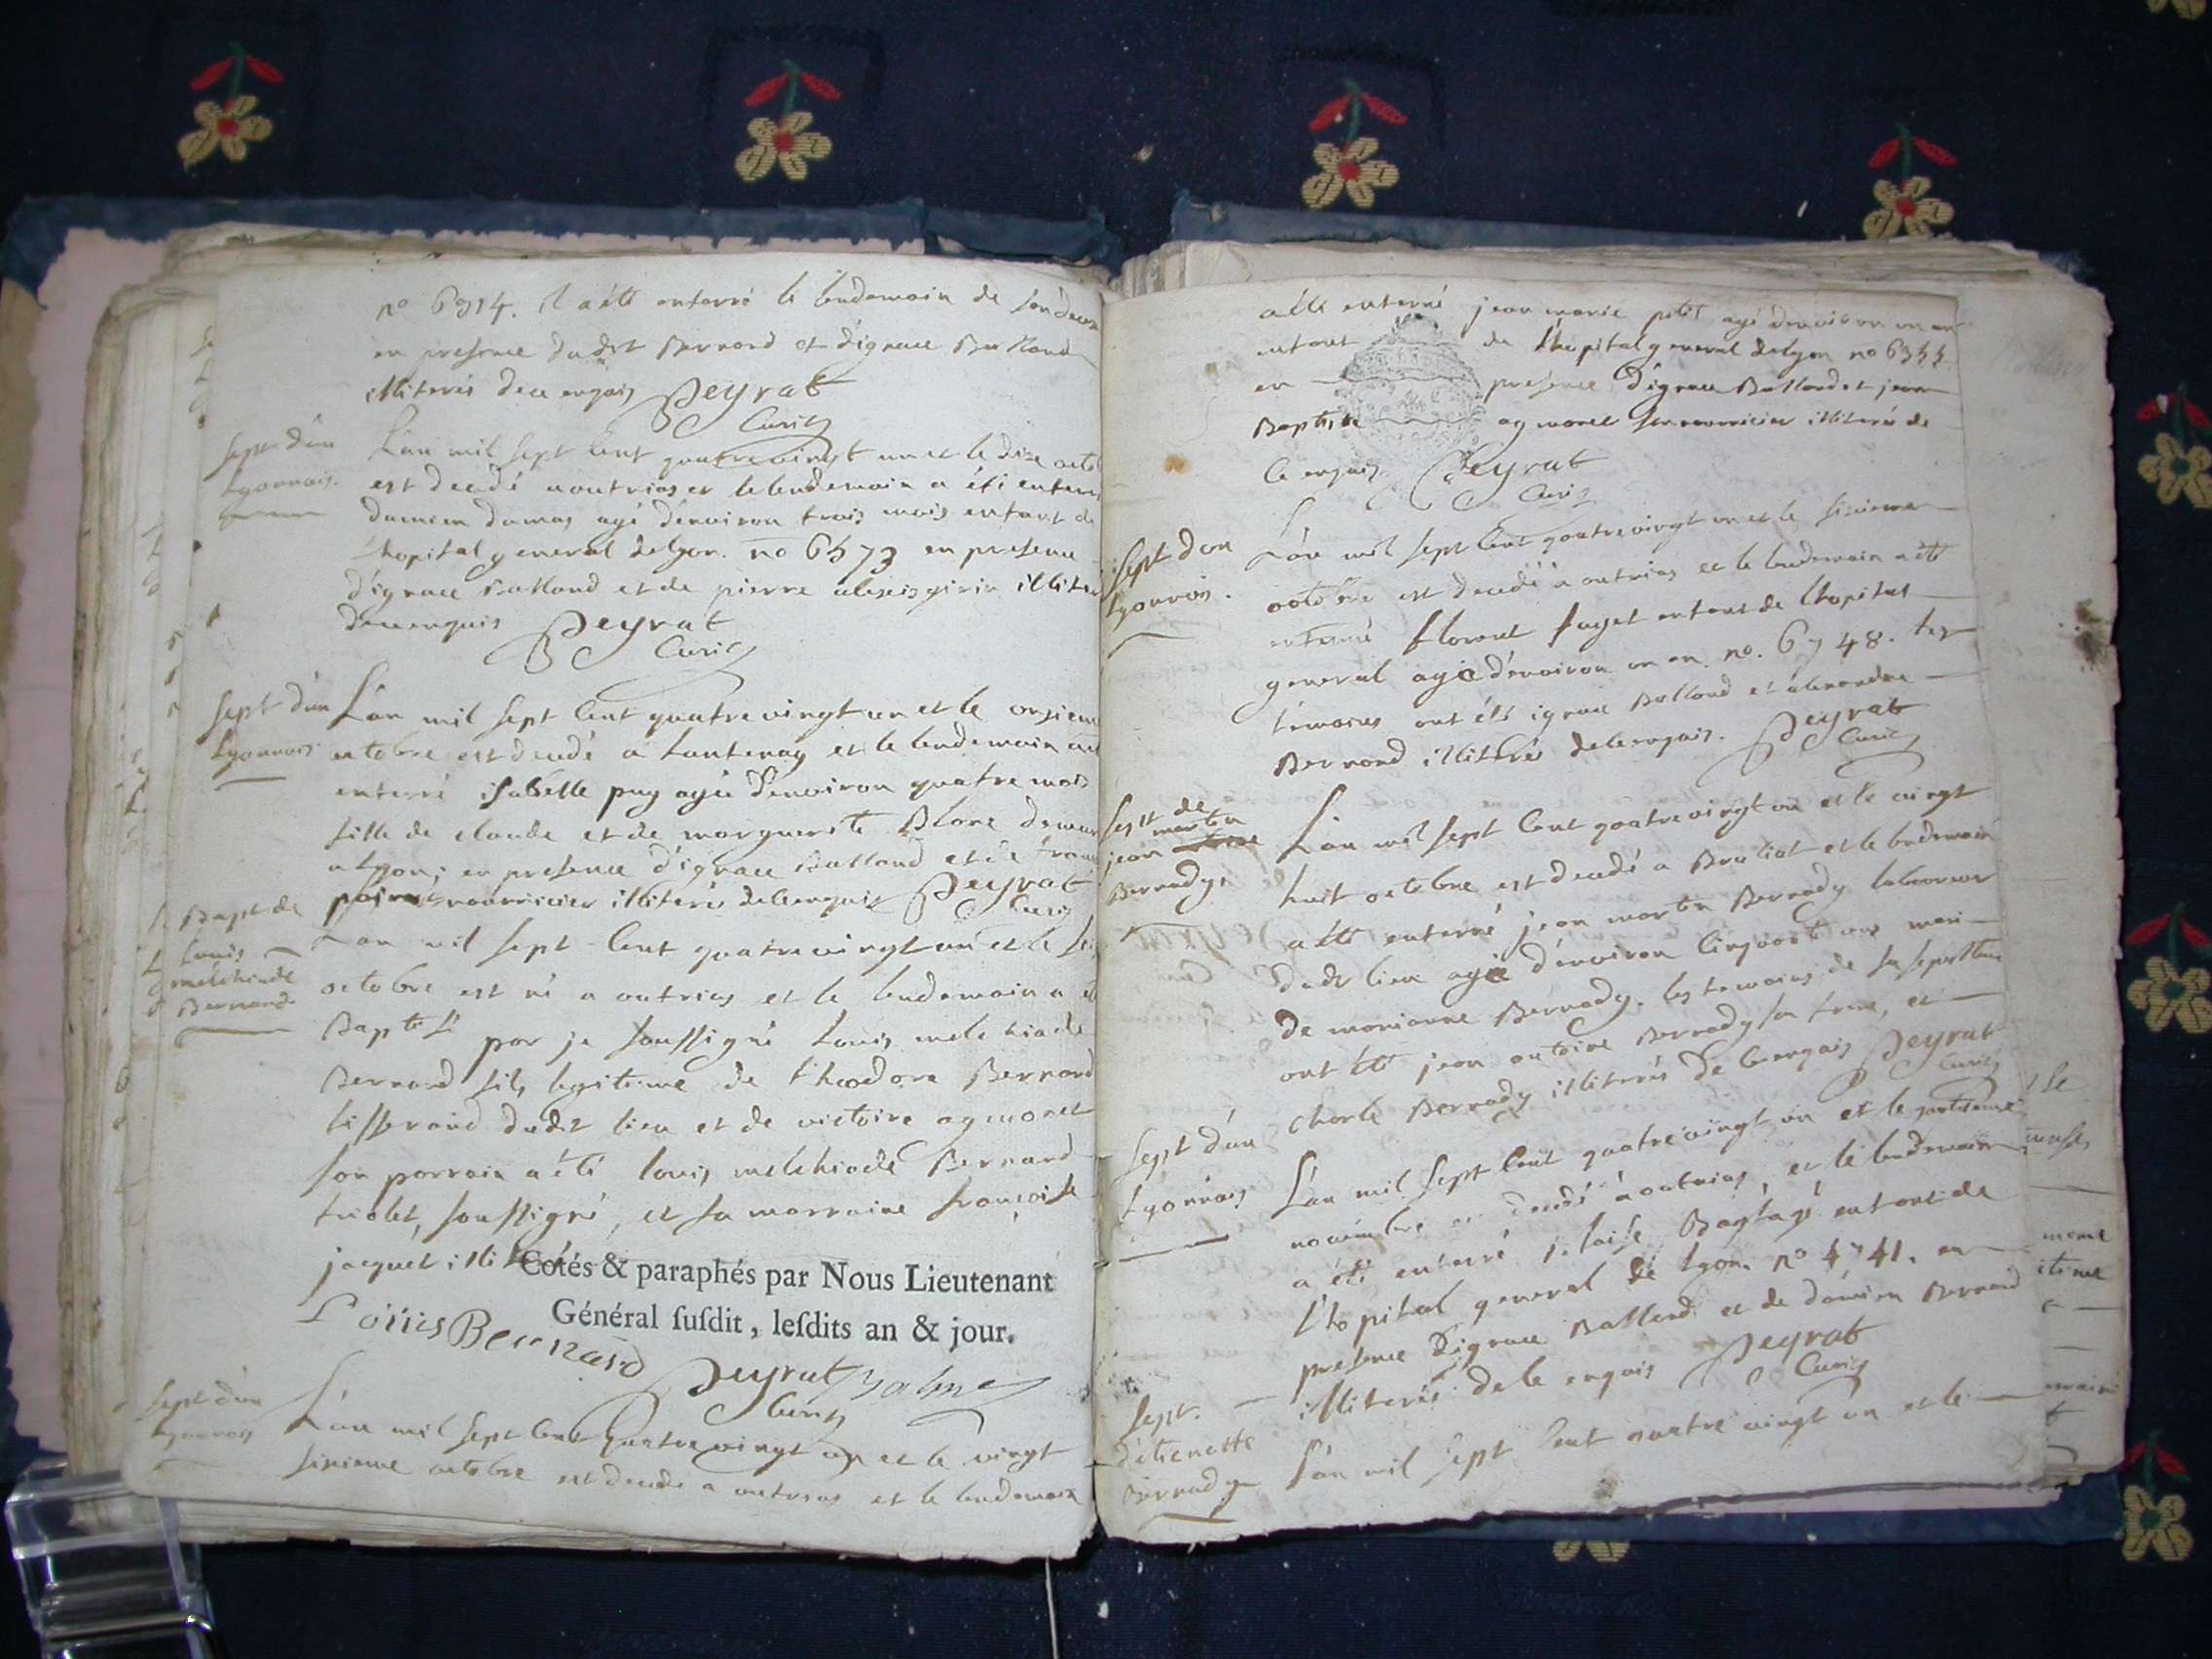 no 6914. il a été enterré le lendemain de son deces
en presence dudit Bernard et d'ignace Balland
illiterés de ce enquis Peyrat
Curé
sept d'un
Lyonnois
L'an mil sept cent quatre vingt un et le dix octo
est decedé a outrias et le lendemain a été enterré
damien dumas agé d'environ trois mois enfant de
l'hopital general de lyon. no 6573 en presence
d'ignace Balland et de pierre alexis girin illiter
de ce enquis Peyrat
Curé
sept d'un
Lyonnois
L'an mil sept cent quatre vingt un et le onzieme
octobre est decedé a Lantenay et le lendemain a été
enterré isabelle puy agée d'environ quatre mois
fille de claude et de marguerite Blanc demeur
a Lyon; en presence d'ignace Balland et de
nourricier illiteré de ce enquis Peyrat
Curé
Bapt de
Louis
melchiade
Bernard
L'an mil sept cent quatre vingt un et le
octobre est né a outrias et le lendemain a été
Baptisé par je soussigné Louis melchiade
Bernard fils legitime de théodore Bernard
tisserand dudit lieu et de victoire aymonet
son parrain a été louis melchiade Bernard
triolet, soussigné, et sa marraine françoise
jacquet illiterée
Cotés & paraphés par Nous Lieutenant
Général susdit, lesdits an & jour.
Loüies Bernard Peyrat Balme
Curé
sept d'un
Lyonnois
L'an mil sept cent quatre vingt un et le vingt
sixieme octobre est decedé a outrias et le lendemain
a été enterré jean marie petit agé d'environ un an
enfant de l'hopital general de lyon no
en presence d'ignace Balland et jean
Baptiste aymonet son nourricier illiterés de
ce enquis. Peyrat
Curé
sept d'un
Lyonnois.
L'an mil sept cent quatre vingt un et le sixieme
octobre est decedé a outrias et le lendemain a été
enterré florent faget enfant de l'hopital
general agé d'environ un an. no. 6748. les
témoins ont été ignace Balland et alexandre
Bernard illitérés de ce enquis. Peyrat
Curé
sept de
jean martin
Bernady.
L'an mil sept cent quatre vingt un et le vingt
huit octobre est decedé a Bruliat et le lendemain
a été enterré jean martin Bernady laboureur
dudt lieu agé d'environ cinquante ans mari
de marianne Bernady. les temoins de sa sepulture
ont été jean antoine Bernady son frere, et
charle Bernady illiterés de ce enquis Peyrat
Curé
sept d'un
Lyonnois
L'an mil sept cent quatre vingt un et le
novembre est decedé a outrias, et le lendemain
a été enterré enfant de
l'hopital general de Lyon. no 4741. en
presence d'ignace Balland et de damien Bernard
illiterés de ce enquis Peyrat
Curé
sept.
d'etienette
Bernady
L'an mil sept cent quatre vingt un et le